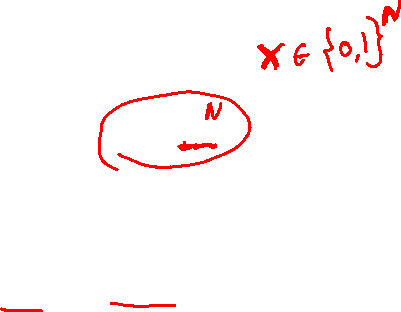 x ∈ {0,1}^N
N